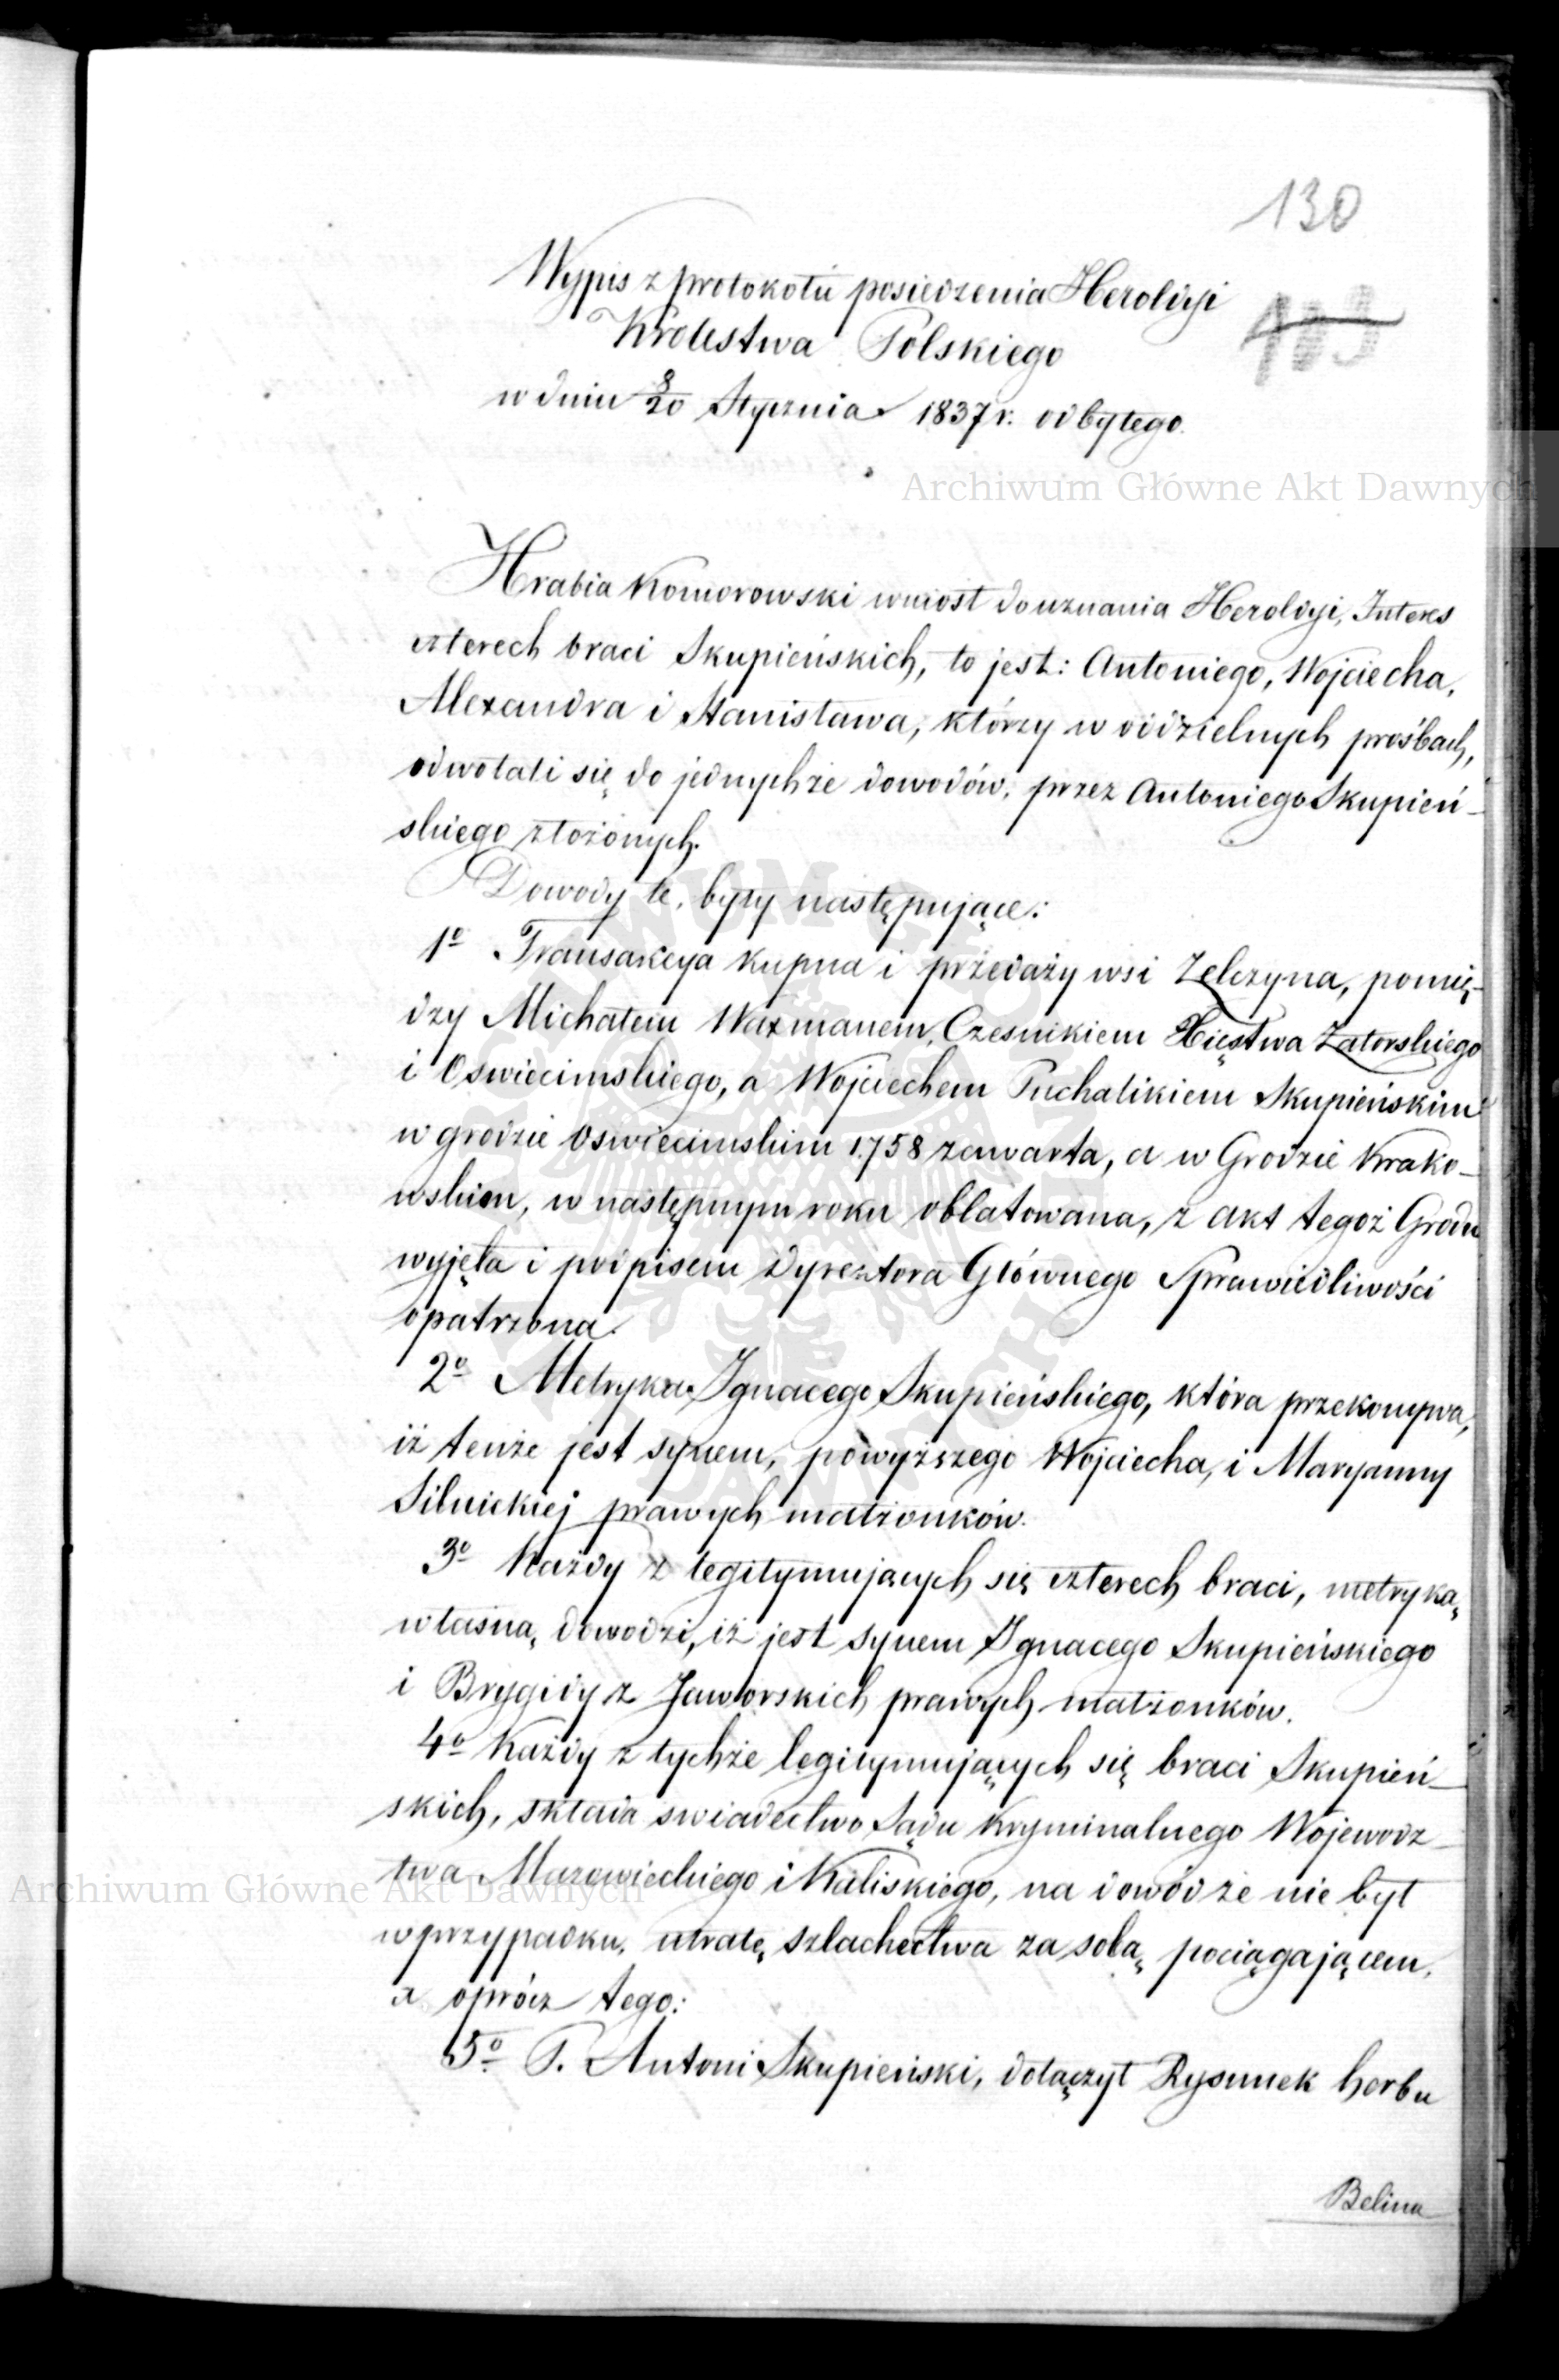 130
Wypis z protokołu posiedzenia Heroldyi
103
Królestwa Polskiego
w dniu 8/20 Stycznia 1837 r. odbytego.
Archiwum Główne Akt Dawnych
Hrabia Komorowski wniósł do uznania Heroldyi, Interes
czterech braci Skupieńskich, to jest: Antoniego, Wojciecha,
Alexandra i Stanisława, którzy w oddzielnych prośbach,
odwołali się do jednychże dowodów, przez Antoniego Skupień-
skiego złożonych.
Dowody te, były następujące:
1o Transakcya kupna i przedaży wsi Zelczyna, pomię-
dzy Michałem Waxmanem, Czesnikiem Xięstwa Zatorskiego
i Oswiecimskiego, a Wojciechem Puchalikiem Skupieńskim
w grodzie Oswiecimskim 1758 zawarta, a w Grodzie Krako-
wskim, w następnym roku oblatowana, z akt tegoż Grodu
wyjęta i podpisem Dyrektora Głównego Sprawiedliwości
opatrzona.
2o Metryka Ignacego Skupieńskiego, która przekonywa,
iż tenże jest synem, powyższego Wojciecha, i Maryanny
Silnickiej prawych małżonków.
3o Każdy z legitymujących się czterech braci, metryką
własną, dowodzi, iż jest synem Ignacego Skupieńskiego
i Brygidy z Jaworskich prawych małżonków.
4o Każdy z tychże legitymujących się braci Skupień-
skich, składa swiadectwo Sądu Kryminalnego Wojewodz-
twa Mazowieckiego i Kaliskiego, na dowód że nie był
w przypadku, utratę szlachectwa za sobą pociągającem,
a oprócz tego:
Archiwum Główne Akt Dawnych
5o P. Antoni Skupieński, dołączył Rysunek herbu
Belina